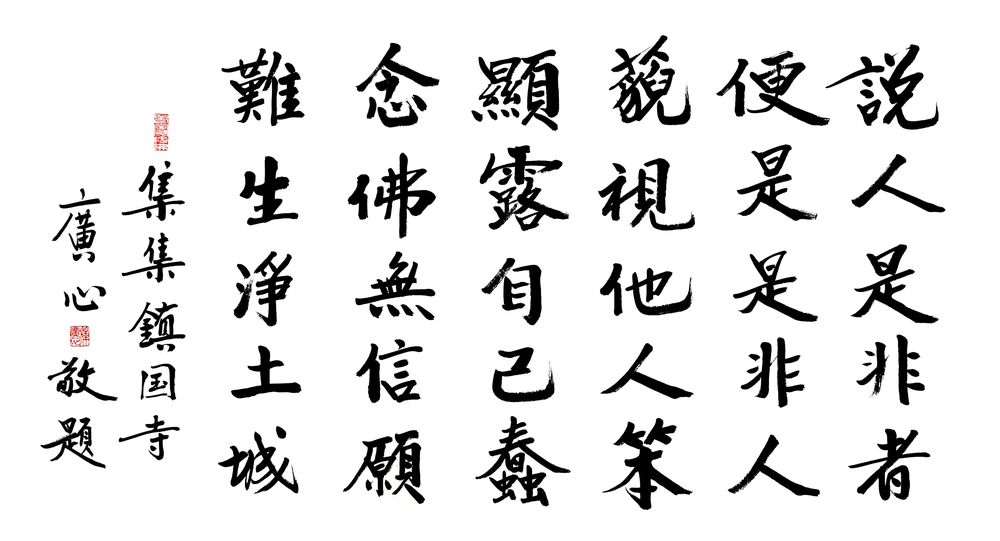 説人是非者
便是是非人
藐視他人笨
顯露自己蠢
念佛無信願
難生淨土城
集集鎮国寺
廣心敬題